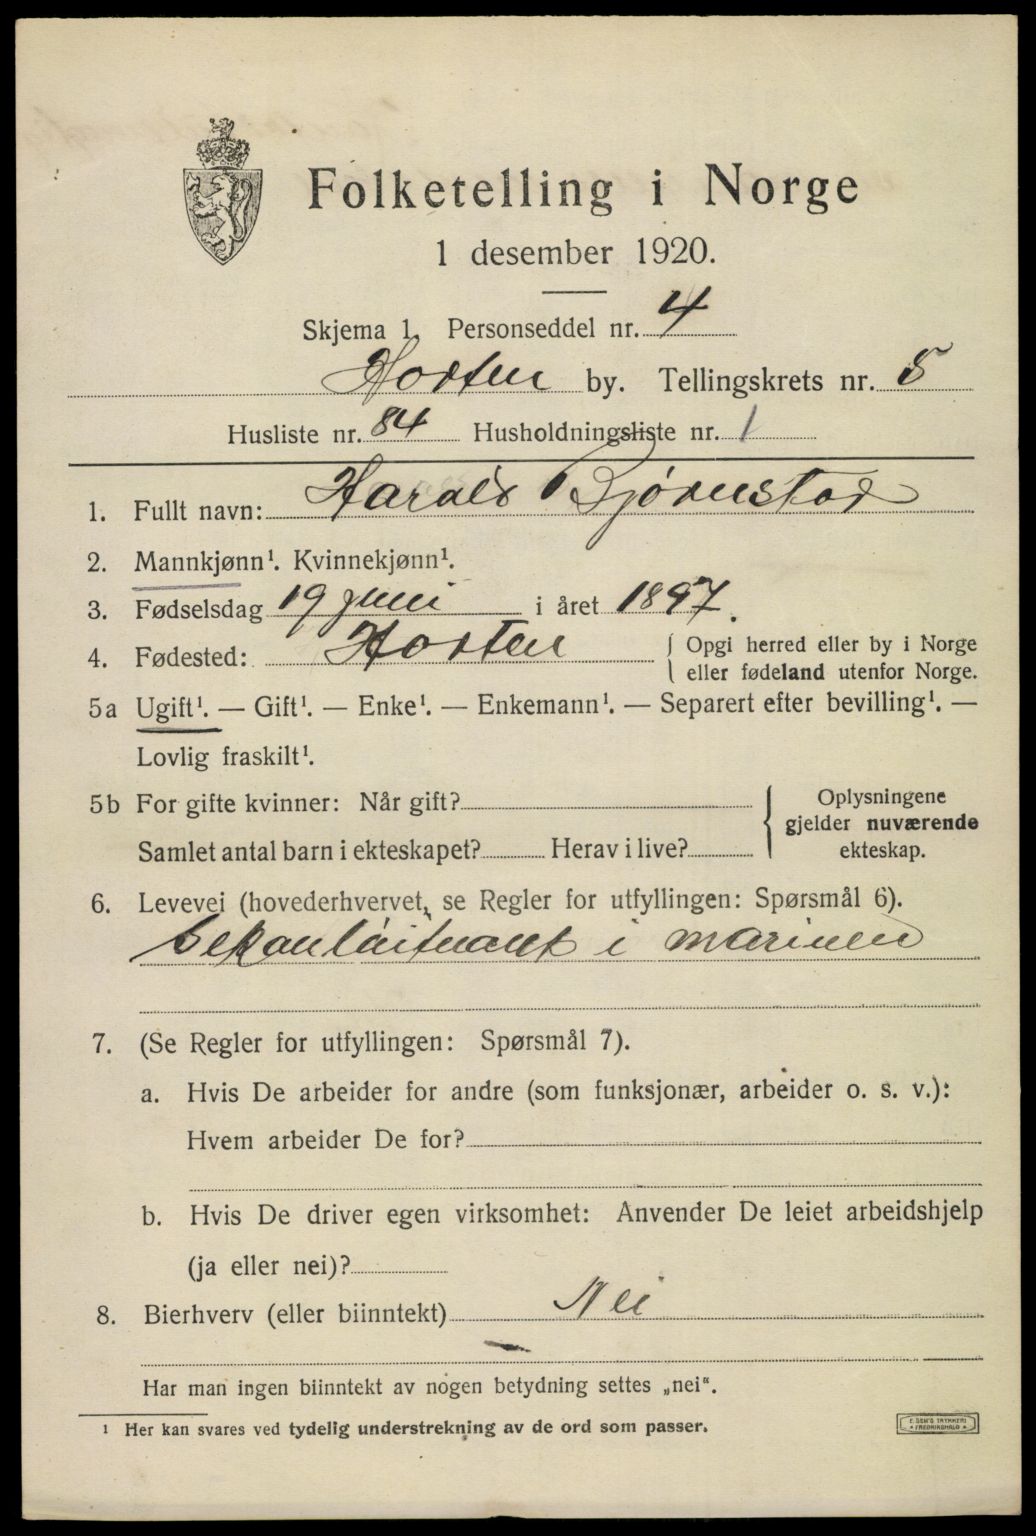 Folketelling i Norge
1 desember 1920.
Skjema 1. Personseddel nr. 4
Horten by. Tellingskrets nr. 5
Husliste nr. 84 Husholdningsliste nr. 1
1. Fullt navn: Harald Bjørnstad
2. Mannkjønn¹. Kvinnekjønn¹.
3. Fødselsdag 19 juni i året 1897.
4. Fødested: Horten { Opgi herred eller by i Norge
eller fødeland utenfor Norge.
5a Ugift¹. — Gift¹. — Enke¹. — Enkemann¹. — Separert efter bevilling¹. —
Lovlig fraskilt¹.
5b For gifte kvinner: Når gift? { Oplysningene
gjelder nuværende
Samlet antal barn i ekteskapet? Herav i live? ekteskap.
6. Levevei (hovederhvervet, se Regler for utfyllingen: Spørsmål 6).
Sekonløitnant i marinen
7. (Se Regler for utfyllingen: Spørsmål 7).
a. Hvis De arbeider for andre (som funksjonær, arbeider o. s. v.):
Hvem arbeider De for?
b. Hvis De driver egen virksomhet: Anvender De leiet arbeidshjelp
(ja eller nei)?
8. Bierhverv (eller biinntekt) Nei
Har man ingen biinntekt av nogen betydning settes „nei“.
¹ Her kan svares ved tydelig understrekning av de ord som passer.
E. SEM'S TRYKKERI
FREDRIKSHALD